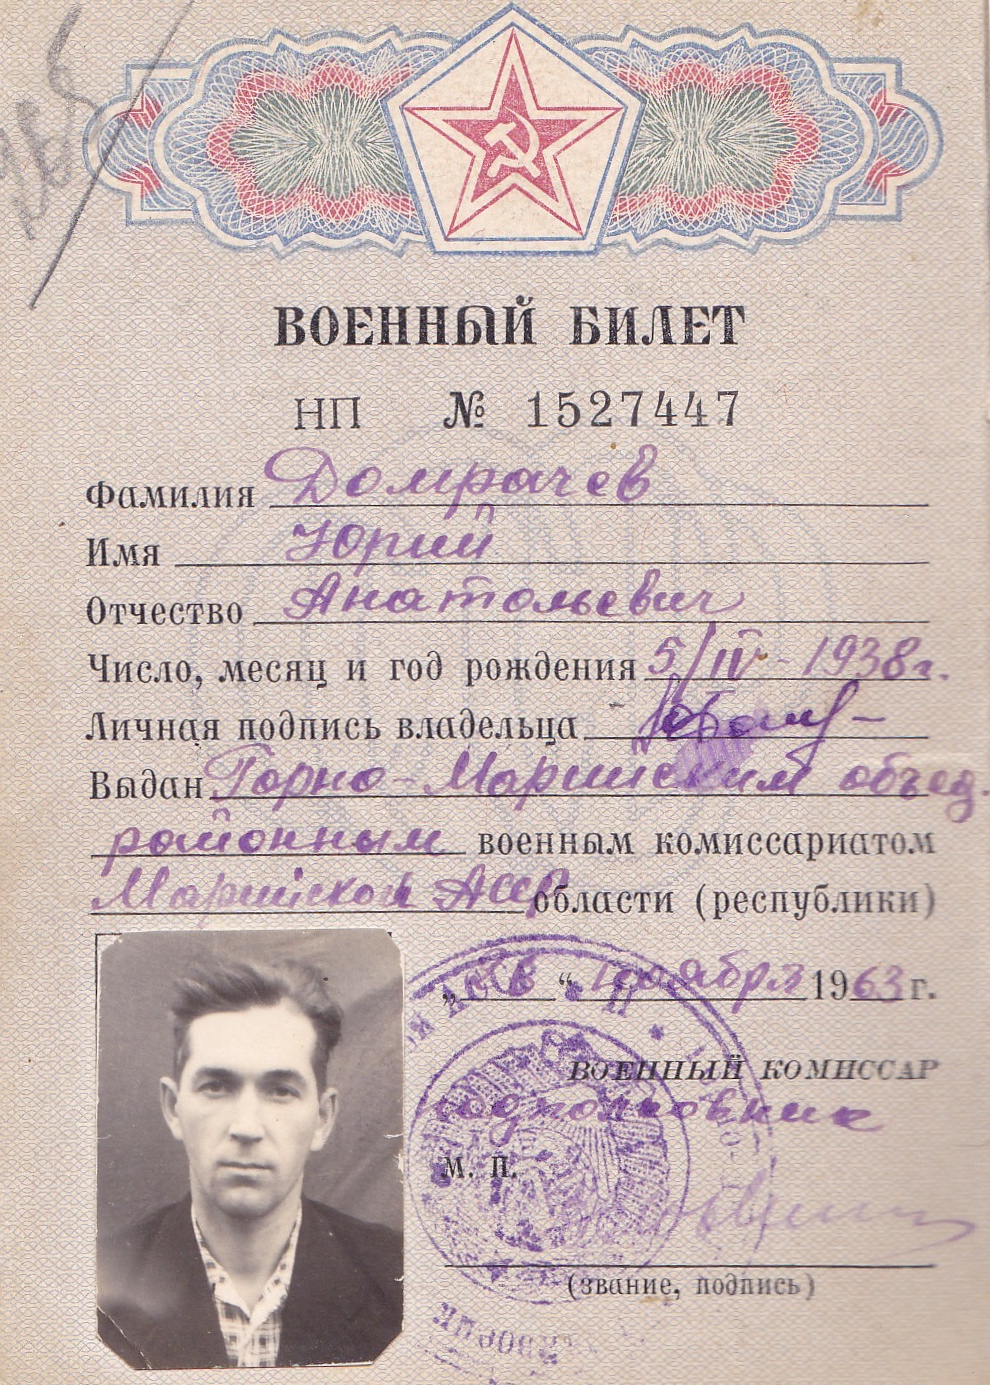 ВОЕННЫЙ БИЛЕТ
НП № 1527447
Фамилия Домрачев
Имя Юрий
Отчество Анатольевич
Число, месяц и год рождения 5/IV - 1938 г.
Личная подпись владельца
Выдан Горно-Марийским объед.
районным военным комиссариатом
Марийской АССР области (республики)
" " ноября 1963 г.
ВОЕННЫЙ КОМИССАР
подполковник
М. П.
(звание, подпись)